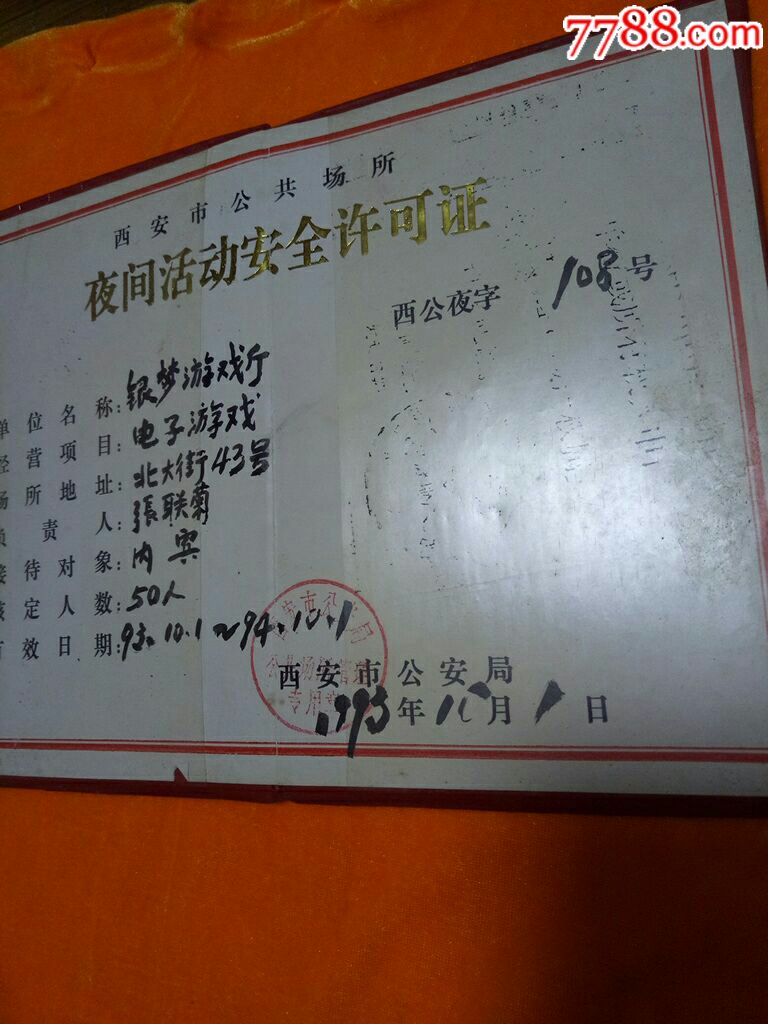 7788.com
西安市公共场所
夜间活动安全许可证
西公夜字 108号
单位名称:银梦游戏厅
经营项目:电子游戏
场所地址:北大街43号
负责人:張联菊
接待对象:内宾
核定人数:50人
有效日期:93.10.1~94.10.1
西安市公安局
专用章
1993年10月1日